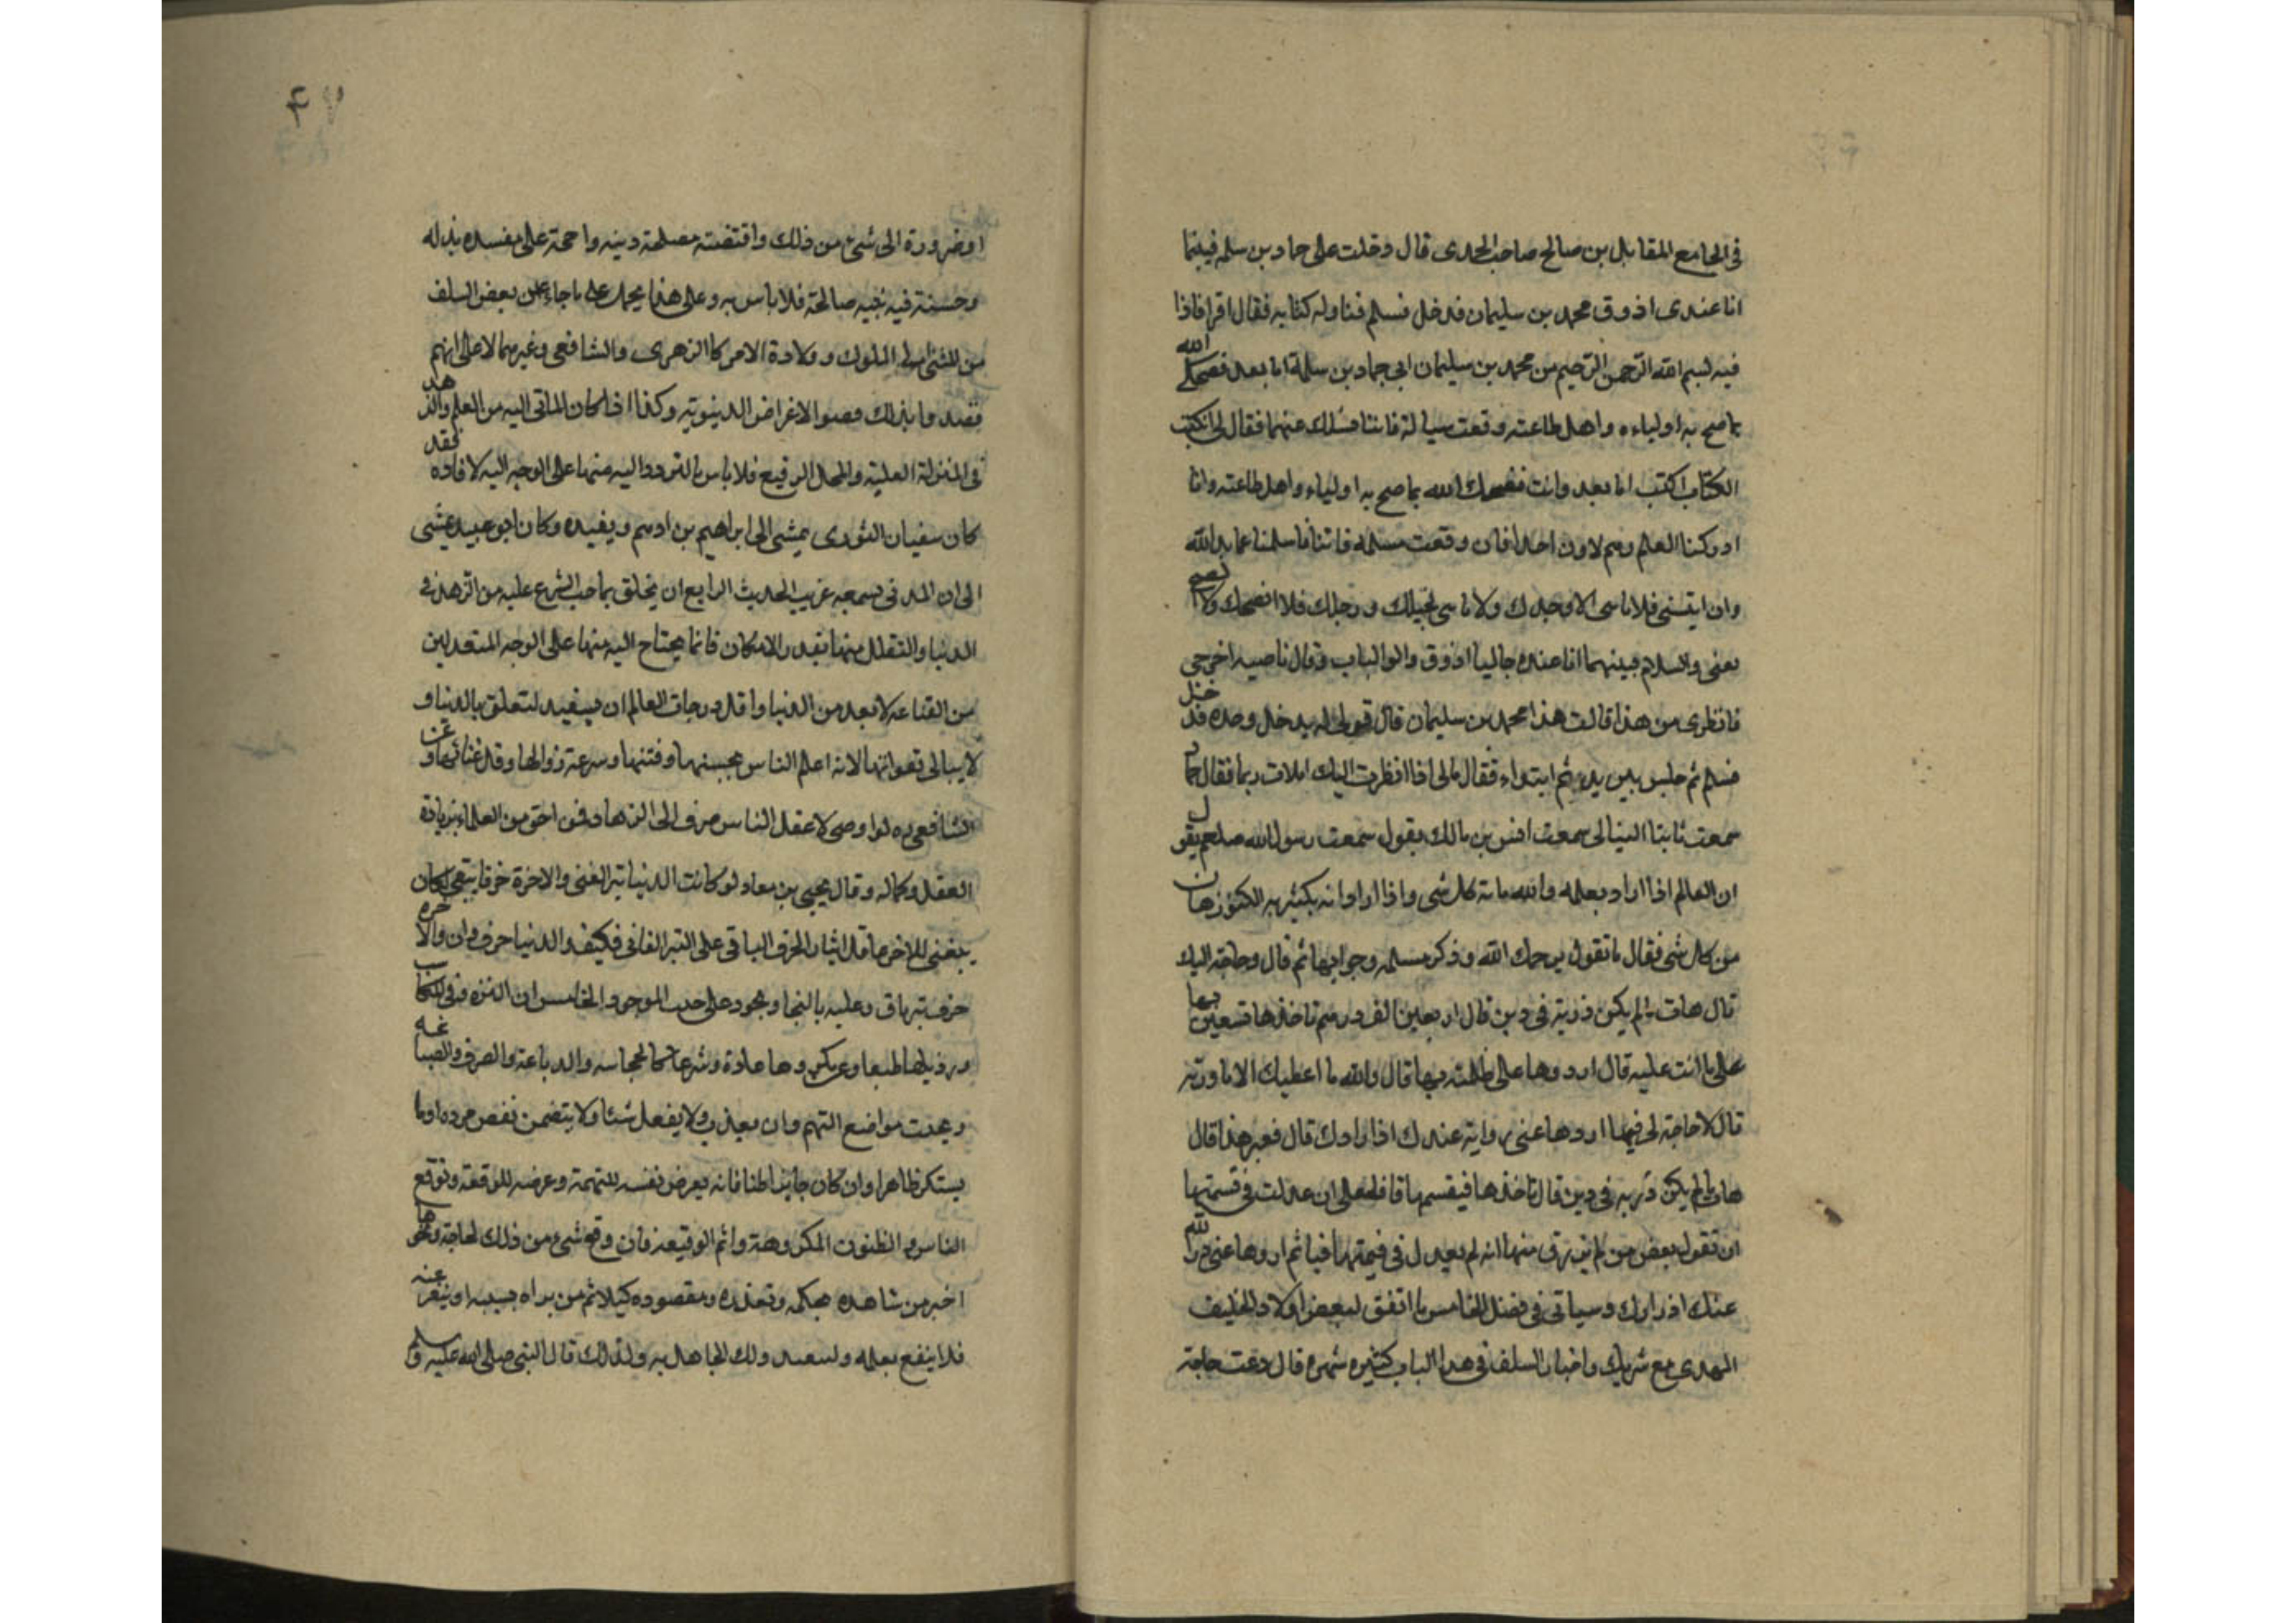 في الجامع المقابل بن صالح صاحب الحمدى قال دخلت على حماد بن سلمه فبينما
انا عنده اذ دق محمد بن سليمان فدخل فسلم فناوله كتابه فقال اقرا فاذا
فيه بسم الله الرحمن الرحيم من محمد بن سليمان الى حماد بن سلمة اما بعد فصبحك الله
بما صبح به اولياءه واهل طاعته وقعت مسالة فاتنا نسئلك عنها فقال لى اكتب
الكتاب اكتب اما بعد وانت فصبحك الله بما صبح به اولياءه واهل طاعته وانا
ادركنا العلم وهم لا ياتون احدا فان وقعت مسئله فاتنا فاسئلنا عما بدالله
وان اتيتنى فلا تاتنى الا وحدك ولا تاتنى بخيلك ورجلك فلا انصحك ولا نصح
نفسى والسلام فبينما انا عنده جالسا اذ دق داق الباب فقال يا صبيه اخرجى
فانظرى من هذا قالت هذا محمد بن سليمان قال قولى له يدخل وحده فدخل
فسلم ثم جلس بين يديه ثم ابتداء فقال مالى اذا نظرت اليك املات ربما فقال حماد
سمعت ثابتا البنانى سمعت انس بن مالك يقول سمعت رسول الله صلعم يقول
ان العالم اذا اراد بعلمه والله هابه كل شى واذا اراد انه يكثر به الكنوز هاب
من كل شى فقال ما تقول يرحمك الله وذكر مسئله وجوابها ثم قال وحاجة اليك
قال هات مالم يكن ذرية فى دين قال اربعين الف درهم تاخذها تستعين بها
على ما انت عليه قال اردوها على ظلمته بها قال والله ما اعطيك الا ما ورثته
قال لا حاجة لى فيها اردوها عنى رواية عندك اذا رادك قال فغير هذا قال
هات مالم يكن ذريه فى دين قال تاخذها فيقسمها قال فلعلى ان عدلت فى قسمتها
ان تقول بعض من لم يترزق منها انه لم يعدل فى قيمتها فياثم اردوها عنى در الله
عنك اذرارك وسياتى فى فضل الخامس ما اتفق لبعض اولاد الخليف
المهدى مع شريك واخبار السلف فى هذا الباب كثيره شهره قال دعت حاجة
٤٧
او ضرورة الى شئ من ذلك واقتضته مصلحة دينه راجحة على مفسده بذله
وحسنة فيه نيه صالحة فلا باس به وعلى هذا يحمل على ما جاء عن بعض السلف
من المشى الى الملوك وولادة الامر كالزهرى والشافعى وغيرهما لا على انهم
قصدوا بذلك فصوا الاغراض الدينوية وكذا اذا كان الماتى اليه من العلم والزهد
فى المنزلة العلية والمحل الرفيع فلا باس بالتردد اليه منها على الوجه اليه لافاده فقد
كان سفيان الثورى يمشى الى ابراهيم بن ادهم ويفيده وكان ابو عبيد يمشى
الى ابن المدنى يسمعه غريب الحديث الرابع ان يتخلق بما حب الشرع عليه من الزهد فى
الدنيا والتقلل منها بقدر الامكان فانما يحتاج اليه منها على الوجه المتعدلين
من القناعه لا بعد من الدنيا واقل درجات العالم ان يستفيد لتعلق بالدنيا و
لا يبالى بفواتها لانه اعلم الناس بخستها وفتنها وسرعة زوالها وقل غنائها وعن
الشافعى ره لو اوصى لاعقل الناس صرف الى الزهاد فمن احق من العلماء بزيادة
العقل وكماله وقال يحيى بن معاد لو كانت الدنيا تبر الفنى والاخرة خزفا يبقى لكان
ينبغى للاخر ما قل ايثار الخزف الباقى على التبر الفانى فكيف والدنيا خزف فان والاخره
خزف تبر باق وعليه بالنجا ويجود على حب الموجود الخامس ان التنزه فى المكاسب
ورذيلها طبعا وعن مكروهها عادة وشرعا كالحجامه والدباغة والصرف والصباغه
ويجنب مواضع التهم وان بعذب ولا يفعل شئا ولا يتضمن نقص مروه او ما
يستكر ظاهرا وان كان جايزا باطنا فانه يعرض نفسه للتهمة وعرضه للوقعة وتوقع
الناس فى الظنون المكروهة واثم الوقيعه فان وقع شئ من ذلك لحاجة ونحوها
اخبر من شاهده بحكمه وتعذره ومقصوده كيلا ياثم من يراه بسببه او ينفر عنه
فلا ينفع بعلمه ولسعد ذلك الجاهل به ولذلك قال النبى صلى الله عليه وسلم